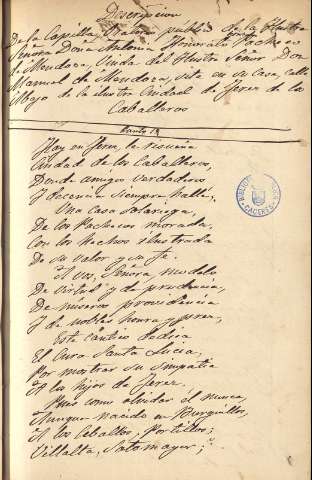 Descripcion
De la Capilla, Oratorio público de la Ilustre
Señora Doña Antonia Honorato Pacheco
de Mendoza, Viuda del Ilustre Señor Don
Manuel de Mendoza, sita en su casa, calle
Mojo de la ilustre Ciudad de Jerez de los
Caballeros
Canto 1º
Hay en Jerez, la
Ciudad de los Caballeros,
Donde amigos verdaderos
Y decencia siempre hallé,
Una casa solariega,
De los Pachecos morada,
Con los hechos ilustrada
De su valor y su fé.
A vos, Señora, modelo
De virtud y de prudencia,
De míseros providencia
Y de nobles honra y prez,
Este cántico dedica
El Cura Santa Lucia,
Por mostrar su simpatia
A los hijos de Jerez.
Pues como olvidar el nunca,
Aunque nacido en Burguillos,
A los Ceballos, Portillos,
Villalta, Sotomayor;
BIBLIOTECA
CACERES